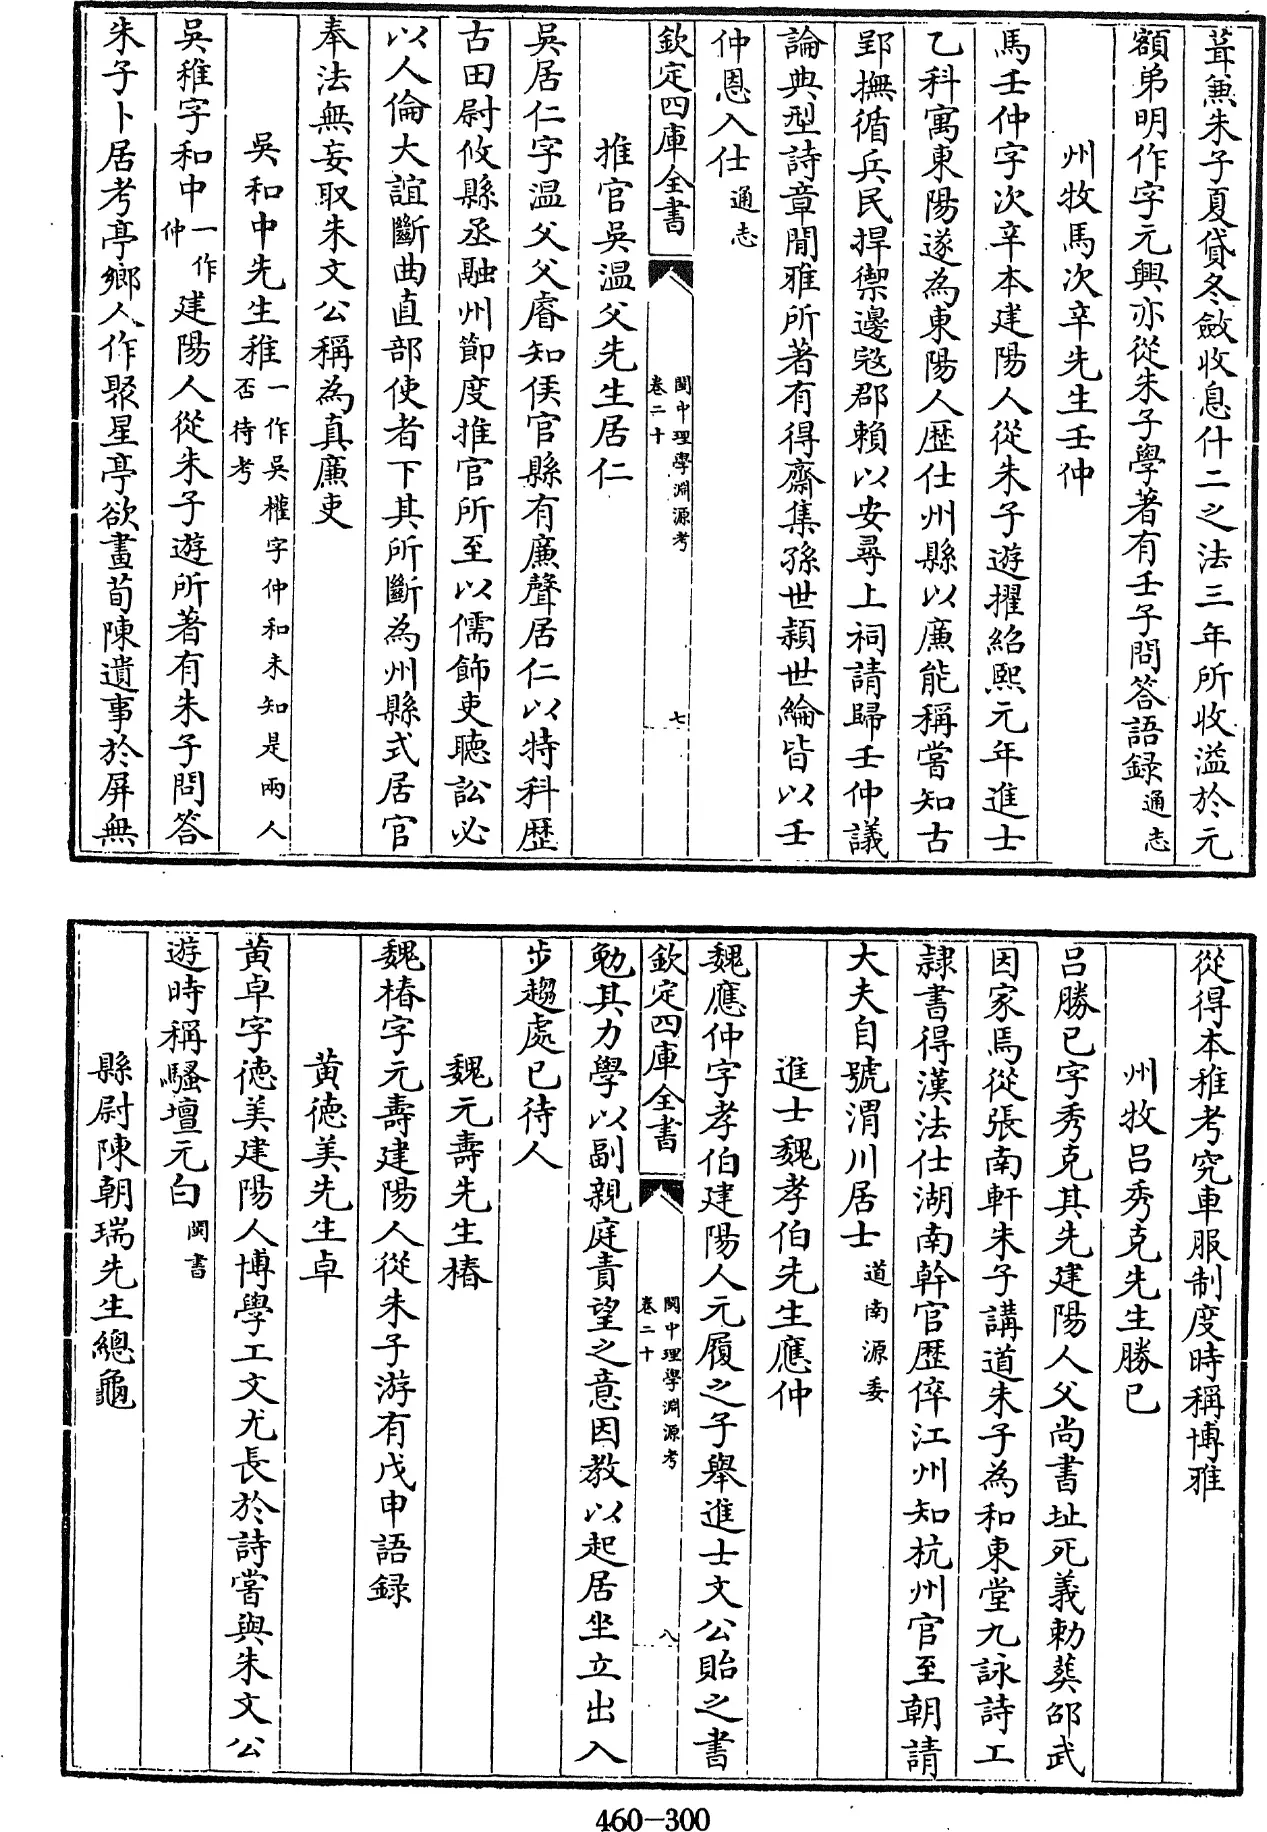 葺兼朱子夏貸冬斂收息什二之法三年所收溢於元
額弟明作字元興亦從朱子學著有壬子問答語録通志
州牧馬次辛先生壬仲
馬壬仲字次辛本建陽人從朱子遊擢紹熙元年進士
乙科寓東陽遂為東陽人歴仕州縣以廉能稱嘗知古
郢撫循兵民捍禦邊冦郡賴以安尋上祠請歸壬仲議
論典型詩章閒雅所著有得齋集孫世潁世綸皆以壬
仲恩入仕通志
欽定四庫全書
閩中理學淵源考
卷二十
七
推官吳温父先生居仁
吳居仁字温父父㫺知侯官縣有廉聲居仁以特科歴
古田尉攸縣丞融州節度推官所至以儒飾吏聽訟必
以人倫大誼斷曲直部使者下其所斷為州縣式居官
奉法無妄取朱文公稱為真廉吏
吳和中先生稚一作吳權字仲和未知是兩人
否待考
吳稚字和中一作
仲建陽人從朱子遊所著有朱子問答
朱子卜居考亭鄉人作聚星亭欲畫荀陳遺事於屏無
從得本稚考究車服制度時稱博雅
州牧吕秀克先生勝已
吕勝已字秀克其先建陽人父尚書址死義勅葬邵武
因家焉從張南軒朱子講道朱子為和東堂九詠詩工
隸書得漢法仕湖南幹官歴倅江州知杭州官至朝請
大夫自號渭川居士道南源委
進士魏孝伯先生應仲
魏應仲字孝伯建陽人元履之子舉進士文公貽之書
欽定四庫全書
閩中理學淵源考
卷二十
八
勉其力學以副親庭責望之意因教以起居坐立出入
步趨處已待人
魏元壽先生椿
魏椿字元壽建陽人從朱子游有戊申語録
黄德美先生卓
黄卓字德美建陽人博學工文尤長於詩嘗與朱文公
遊時稱騷壇元白閩書
縣尉陳朝瑞先生總龜
460-300